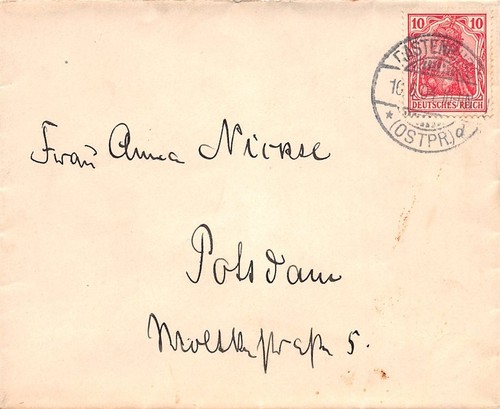 10 10
DEUTSCHES REICH
(OSTPR) d
Frau Anna Nickse
Potsdam
Moltkestraße 5.